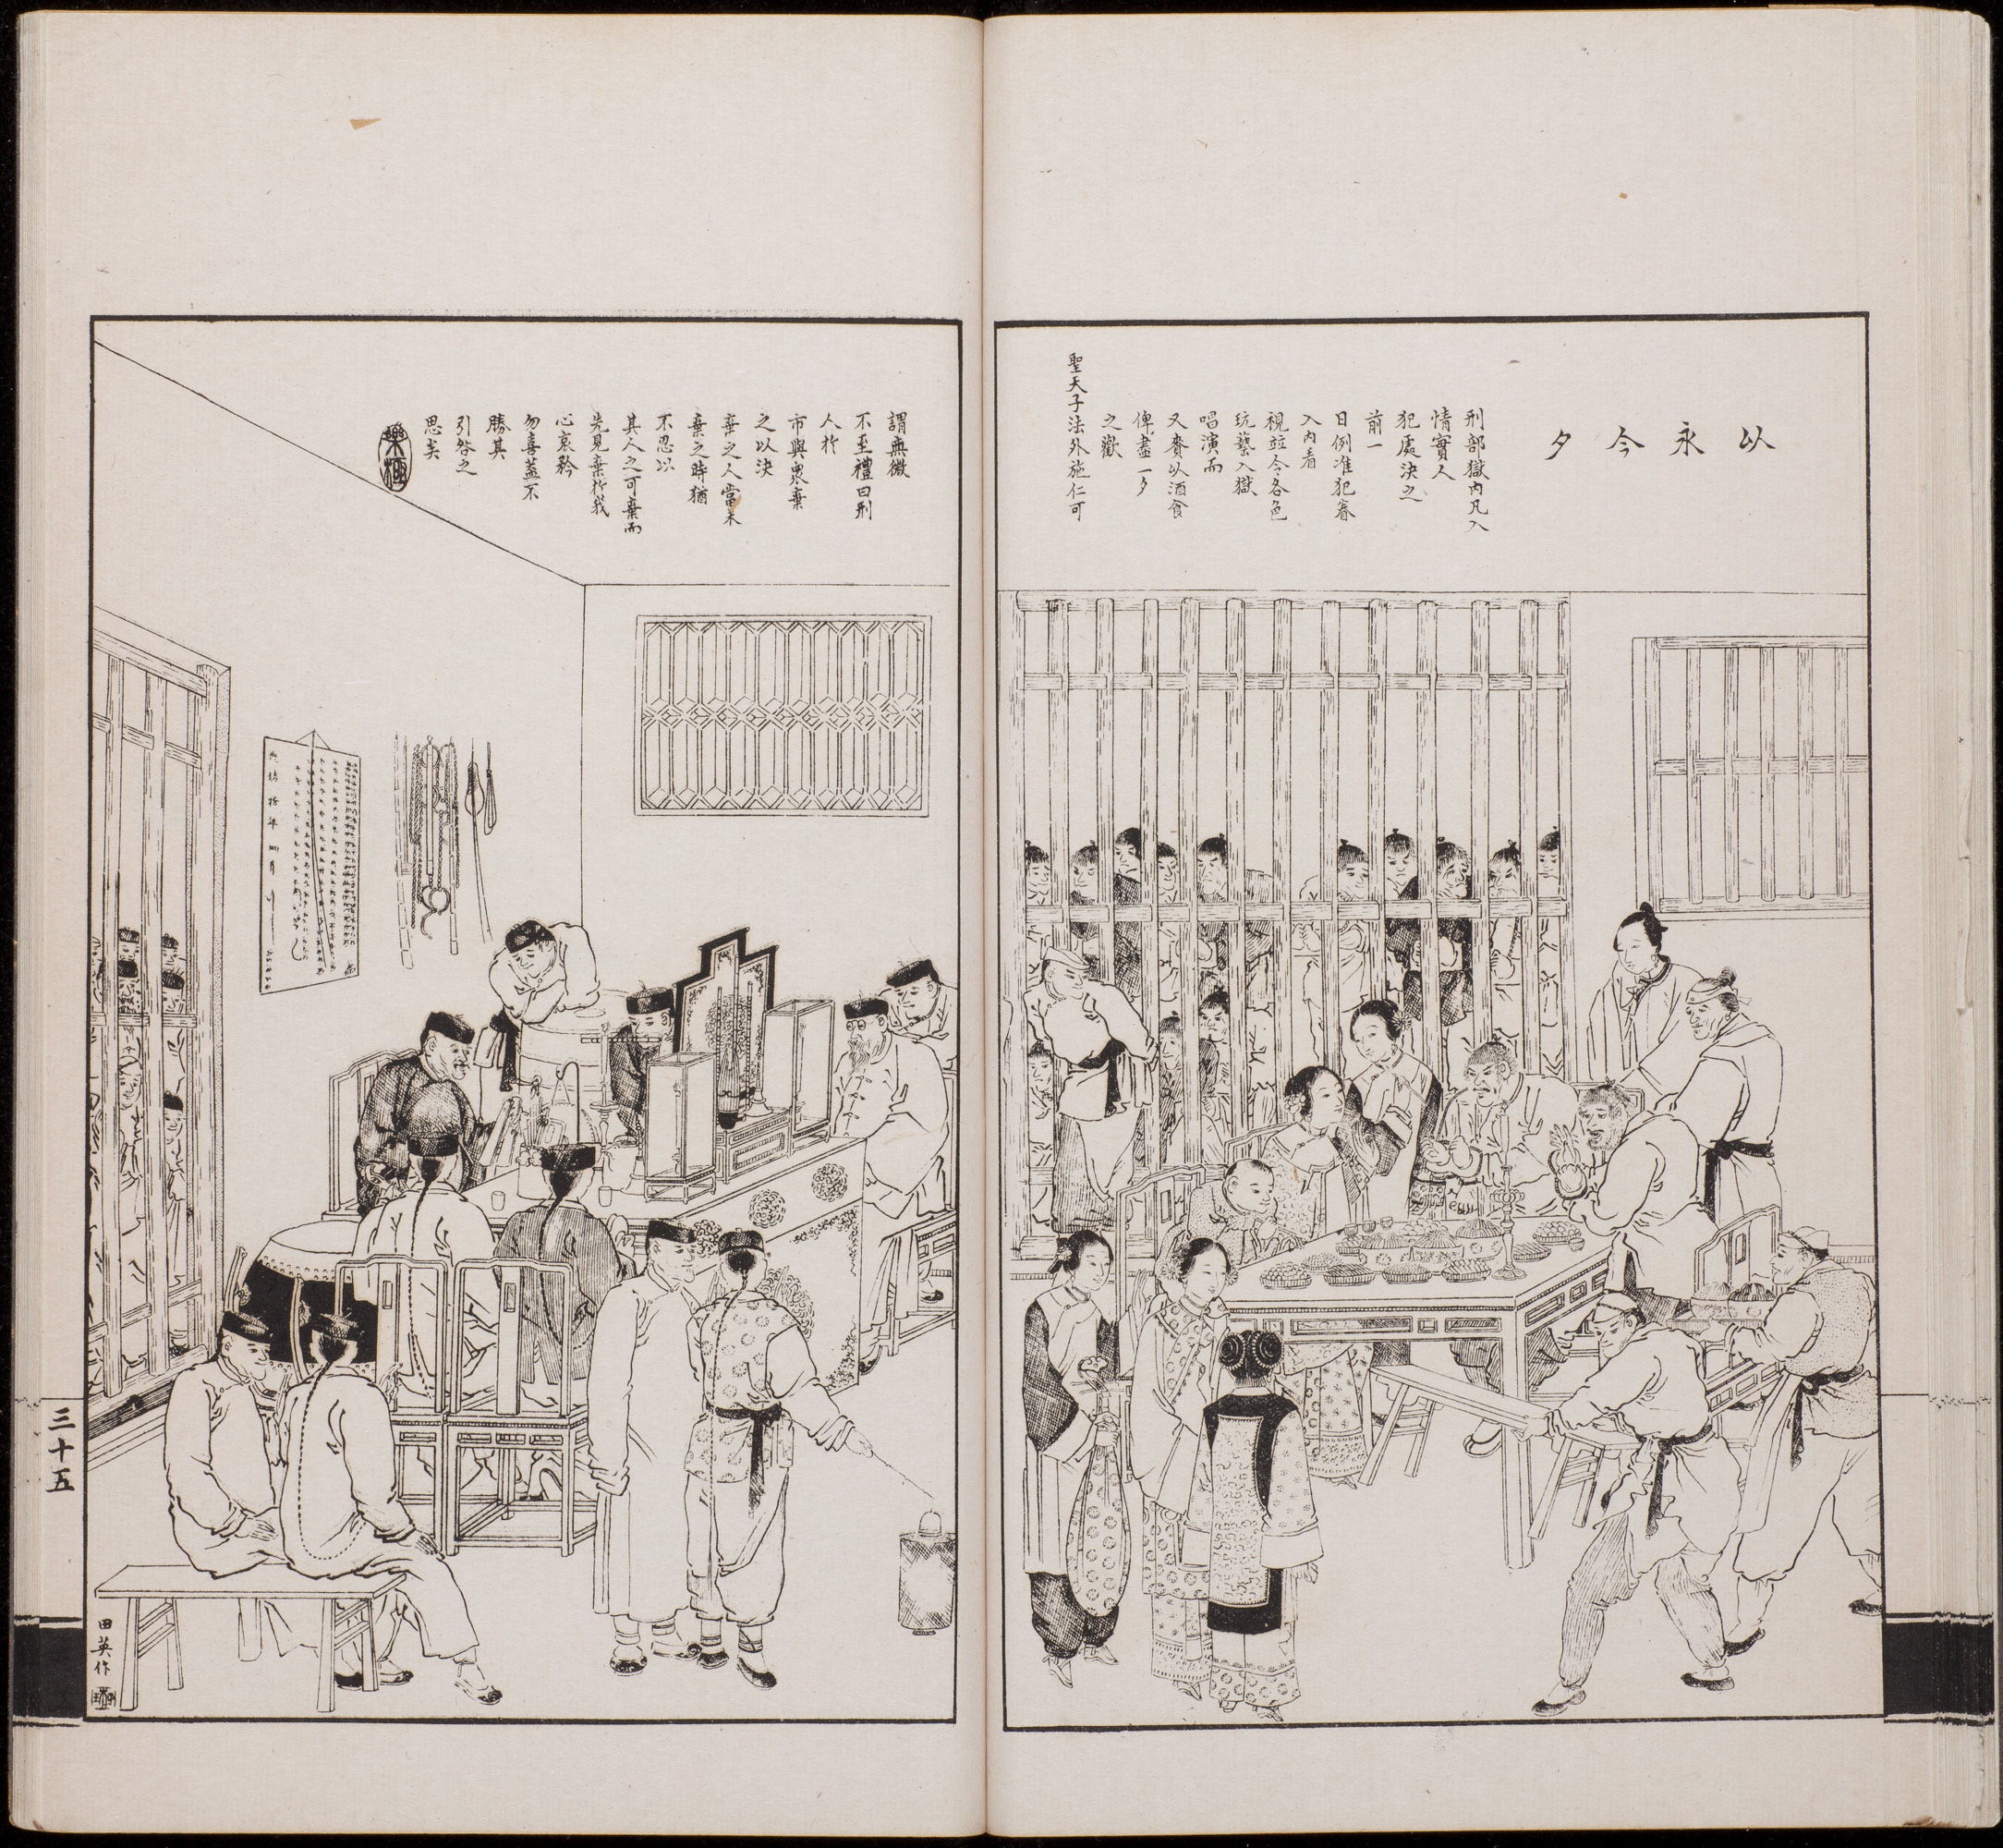 以永今夕
刑部獄內凡入
情實人
犯處決之
前一
日例准犯眷
入內看
視並令各色
玩藝入獄
唱演而
又賚以酒食
俾盡一夕
之歡
聖天子法外施仁可
謂無微
不至禮曰刑
人於
市與眾棄
之以決
棄之人當未
棄之時猶
不忍以
其人之可棄而
先見棄於我
心哀矜
勿喜蓋不
勝其
引咎之
思矣
樂極
田英作
三十五